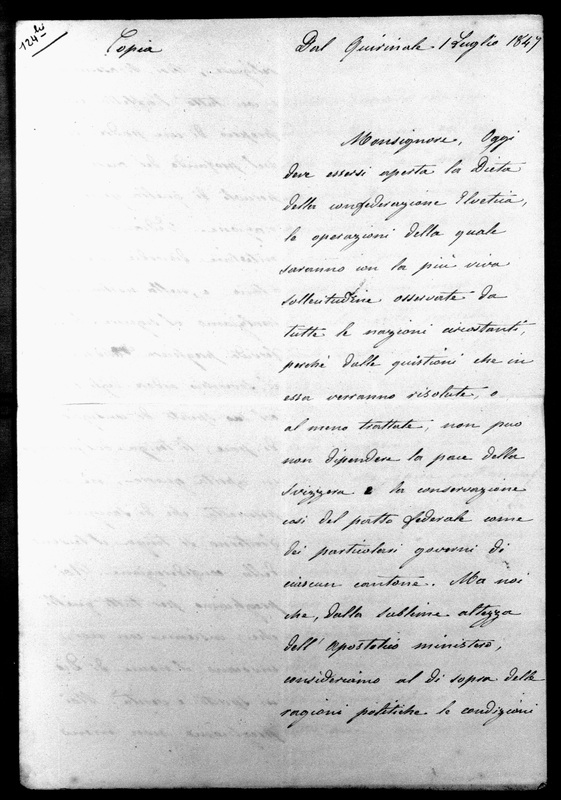 124-
Copia
Dal Quirinale. 1 Luglio 1847
Monsignore, Oggi
deve essersi aperta la Dieta
della confederazione Elvetica,
le operazioni della quale
saranno con la più viva
sollecitudine osservate da
tutte le nazioni circostanti,
perchè dalle quistioni che in
essa verranno risolute, o
al meno trattate, non può
non dipendere la pace della
Svizzera e la conservazione
così del patto federale come
dei particolari governi di
ciascun cantone. Ma noi
che, dalla sublime altezza
dell' Apostolico ministero,
consideriamo al di sopra delle
ragioni politiche le condizioni